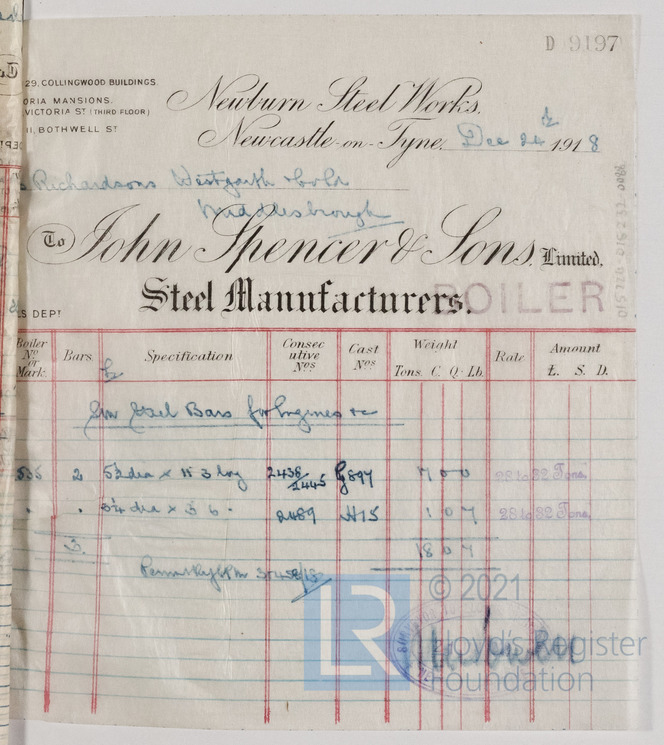 D 9197
29, COLLINGWOOD BUILDINGS.
ORIA MANSIONS.
VICTORIA ST (THIRD FLOOR)
11, BOTHWELL ST
Newburn Steel Works,
Newcastle-on-Tyne, Dec 24 1918
Richardsons Westgarth & Co Ld
Middlesbrough
To John Spencer & Sons, Limited,
Steel Manufacturers.
BOILER
LS DEPT
Boiler No or Mark. Bars. Specification Consecutive Nos Cast Nos Weight Tons. C. Q. Lb. Rate Amount £. S. D.
Steel Bars for Engines &c
2 dia x 3 long 2438/2445 897 28 to 32 Tons.
" " dia x 3 6 " 2489 H15 1 0 7 28 to 32 Tons.
3. 18 0 7
© 2021
LR Lloyd's Register
Foundation